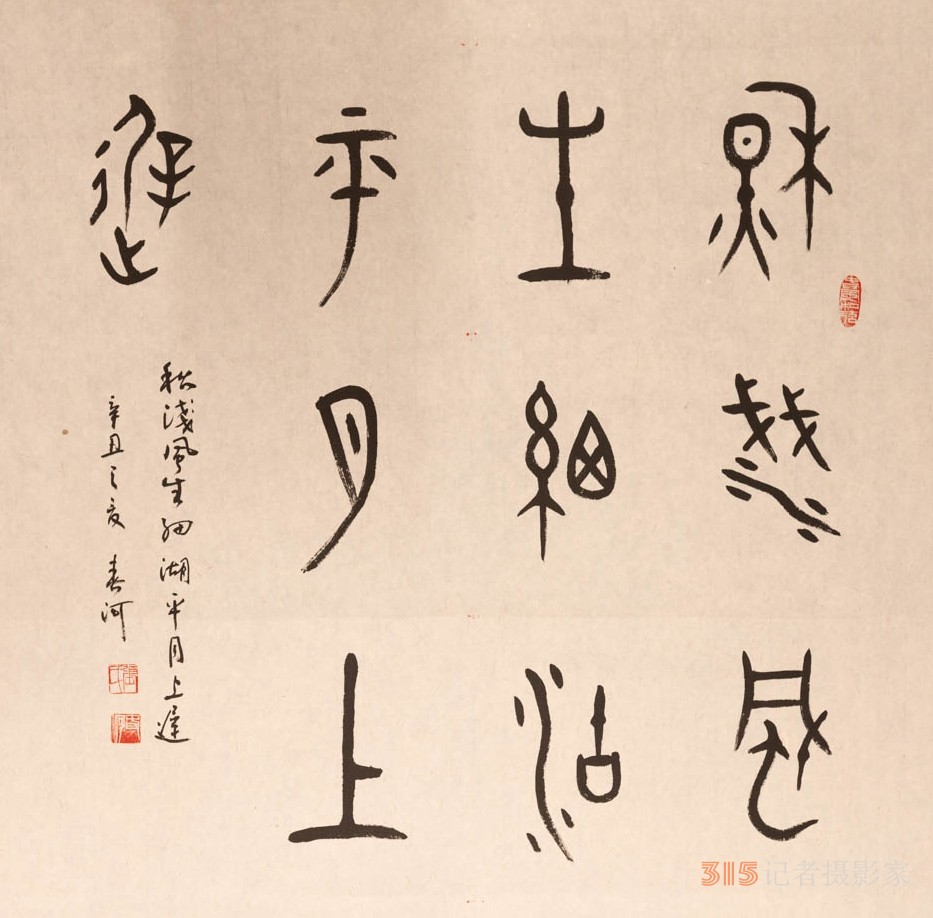 秋淺風
生細湖
平月上
遲
秋淺風生細湖平月上遲
辛丑之夏 春河
315记者摄影家